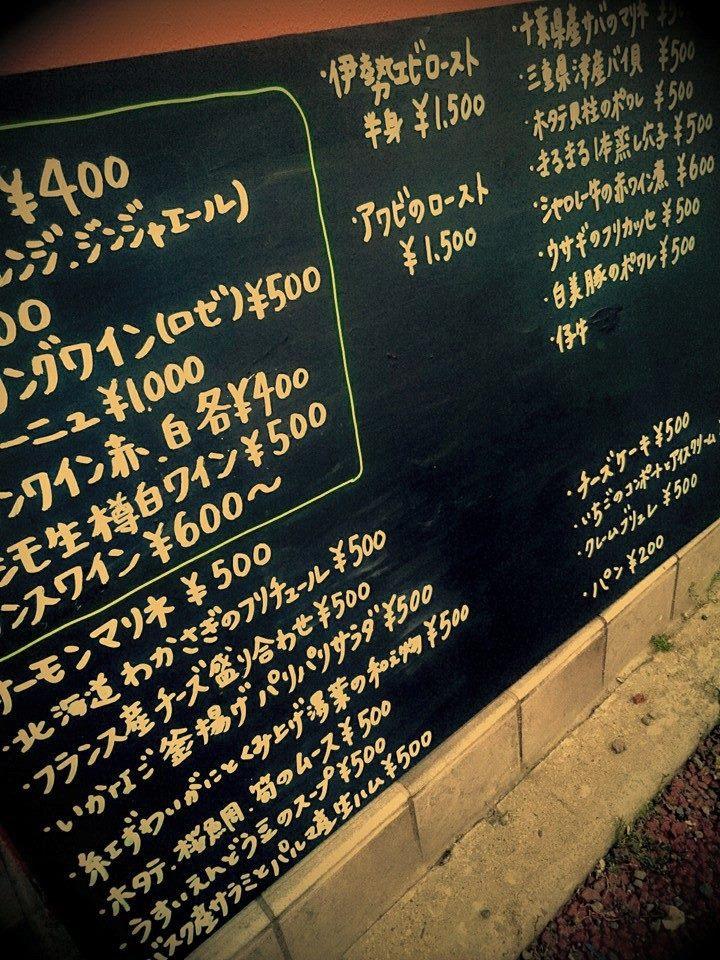 ¥400
レンジ.ジンジャエール)
00
リングワイン(ロゼ)¥500
ーニュ¥1000
ンワイン赤.白各¥400
ミモ生樽白ワイン¥500
ンスワイン¥600〜
サーモンマリネ ¥500
・北海道わかさぎのフリチュール¥500
・フランス産チーズ盛り合わせ¥500
・いかなご釜揚げパリパリサラダ¥500
・紅ずわいがにとくみ上げ湯葉の和え物¥500
・ホタテ.桜鯛.筍のムース¥500
・うすいえんどう豆のスープ¥500
・バスク産サラミとパルマ産生ハム¥500
・伊勢エビロースト
半身 ¥1.500
・アワビのロースト
¥1.500
・千葉県産サバのマリネ
・三重県津産バイ貝 ¥500
・ホタテ貝柱のポワレ ¥500
・まるまる1本蒸し穴子 ¥500
・シャロレー牛の赤ワイン煮 ¥600
・ウサギのフリカッセ ¥500
・白美豚のポワレ ¥500
・仔牛
・チーズケーキ¥500
・いちごのコンポートとアイスクリーム
・クレームブリュレ ¥500
・パン ¥200